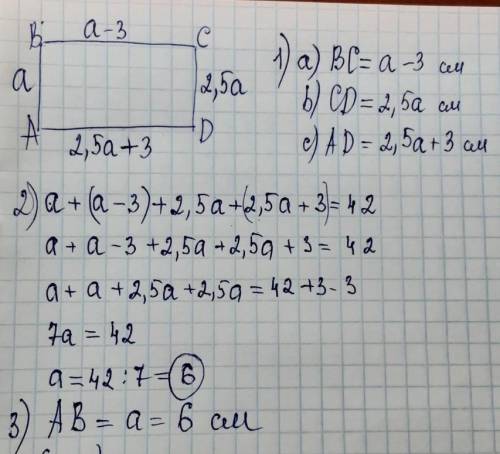 B a-3 C
a 2,5a
A 2,5a+3 D
1) a) BC = a -3 см
b) CD = 2,5a см
c) AD = 2,5a+3 см
2) a + (a-3) + 2,5a + (2,5a + 3) = 42
a + a - 3 + 2,5a + 2,5a + 3 = 42
a + a + 2,5a + 2,5a = 42 +3 - 3
7a = 42
a = 42 : 7 = 6
3) AB = a = 6 см